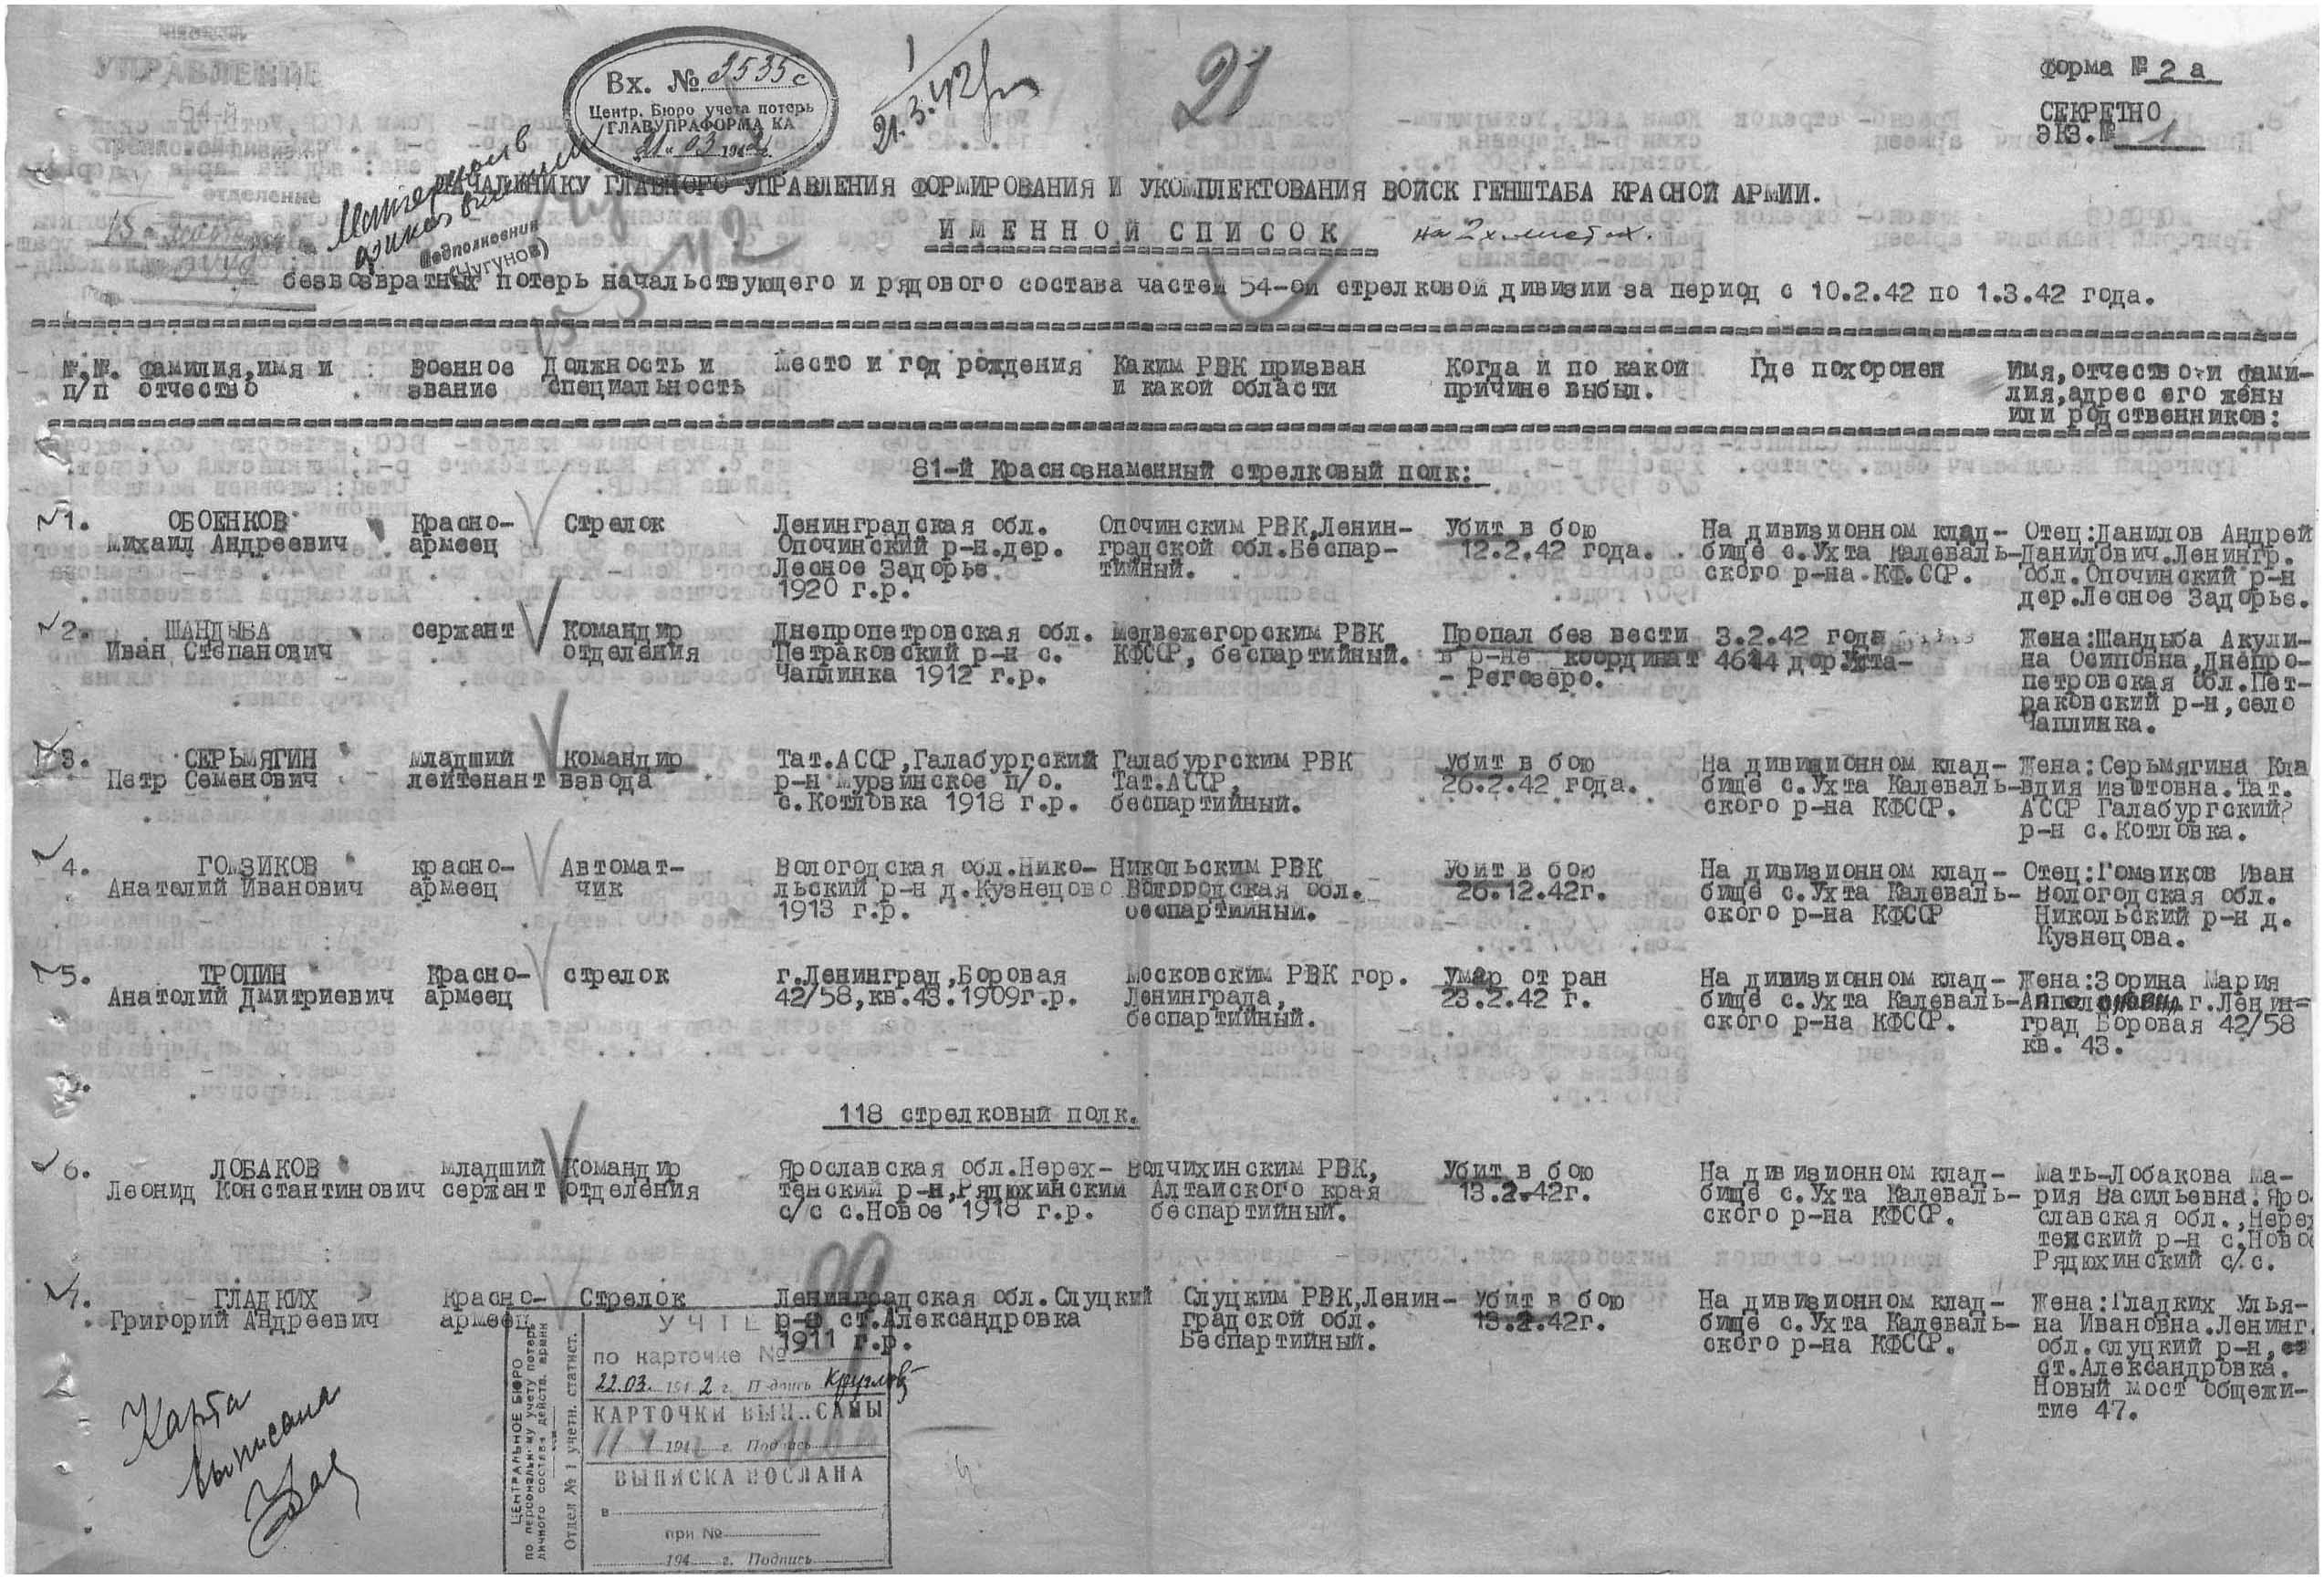 УПРАВЛЕНИЕ
54-й
отделение
Вх. № 2535с
Центр. Бюро учета потерь
ГЛАВУПРАФОРМА КА
"21" 03 1942 г.
21.3.42
21
Форма № 2 а
СЕКРЕТНО
ЭКЗ.№ 1
Подполковник
(Чугунов)
НАЧАЛЬНИКУ ГЛАВНОГО УПРАВЛЕНИЯ ФОРМИРОВАНИЯ И УКОМПЛЕКТОВАНИЯ ВОЙСК ГЕНШТАБА КРАСНОЙ АРМИИ.
ИМЕННОЙ СПИСОК на 2х листах.
безвозвратных потерь начальствующего и рядового состава частей 54-ой стрелковой дивизии за период с 10.2.42 по 1.3.42 года.
№.№. фамилия,имя и Военное Должность и Место и год рождения Каким РВК призван Когда и по какой Где похоронен Имя,отчество и фами-
п/п отчество звание специальность и какой области причине выбыл. лия,адрес его жены
или родственников:
81-й Краснознаменный стрелковый полк:
1. ОБОЕНКОВ Красно- Стрелок Ленинградская обл. Опочинским РВК,Ленин- Убит в бою На дивизионном клад- Отец:Данилов Андрей
Михаил Андреевич армеец Опочинский р-н.дер. градской обл.Беспар- 12.2.42 года. бище с.Ухта Калеваль- Данилович.Ленингр.
Лесное Задорье. тийный. ского р-на.КФ.ССР. обл.Опочинский р-н
1920 г.р. дер.Лесное Задорье.
2. ШАНДЫБА сержант Командир Днепропетровская обл. Медвежегорским РВК Пропал без вести 3.2.42 года Жена:Шандыба Акули-
Иван Степанович отделения Петраковский р-н с. КФССР, беспартийный. в р-не координат 4644 дор Ухта- на Осиповна,Днепро-
Чаплинка 1912 г.р. - Регозеро. петровская обл.Пет-
раковский р-н,село
Чаплинка.
3. СЕРЬМЯГИН младший Командир Тат.АССР,Галабургский Галабургским РВК Убит в бою На дивизионном клад- Жена:Серьмягина Кла
Петр Семенович лейтенант взвода р-н Мурзинское п/о. Тат.АССР, 26.2.42 года. бище с.Ухта Калеваль- вдия Изотовна.Тат.
с.Котловка 1918 г.р. беспартийный. ского р-на КФССР. АССР Галабургский
р-н с.Котловка.
4. ГОМЗИКОВ красно- Автомат- Вологодская обл.Нико- Никольским РВК Убит в бою На дивизионном клад- Отец:Гомзиков Иван
Анатолий Иванович армеец чик льский р-н д.Кузнецово Вологодская обл. 26.12.42г. бище с.Ухта Калеваль- Вологодская обл.
1913 г.р. беспартийный. ского р-на КФССР Никольский р-н д.
Кузнецова.
5. ТРОПИН Красно- стрелок г.Ленинград,Боровая Московским РВК гор. Умар от ран На дивизионном клад- Жена:Зорина Мария
Анатолий Дмитриевич армеец 42/58,кв.43.1909г.р. Ленинграда, 23.2.42 г. бище с.Ухта Калеваль- г.Ленин=
беспартийный. ского р-на КФССР. град Боровая 42/58
кв. 43.
118 стрелковый полк.
6. ЛОБАКОВ младший Командир Ярославская обл.Нерех- Волчихинским РВК, Убит в бою На дивизионном клад- Мать-Лобакова Ма-
Леонид Константинович сержант отделения тенский р-н,Рядюхинский Алтайского края 13.2.42г. бище с.Ухта Калеваль- рия Васильевна.Яро
с/с с.Новое 1918 г.р. беспартийный. ского р-на КФССР. славская обл.,Нере
тенский р-н с.Ново
Рядюхинский с/с.
7. ГЛАДКИХ Красно- Стрелок Ленинградская обл.Слуцкий Слуцким РВК,Ленин- Убит в бою На дивизионном клад- Жена:Гладких Улья-
Григорий Андреевич армеец р-н ст.Александровка градской обл. 13.2.42г. бище с.Ухта Калеваль- на Ивановна.Ленинг.
1911 г.р. Беспартийный. ского р-на КФССР. обл.слуцкий р-н,
ст.Александровка.
Новый мост общежи-
тие 47.
99
Карта
выписана
ЦЕНТРАЛЬНОЕ БЮРО
по персональному учету потерь
личного состава действ. армии
Отдел № 1 учетн. статист.
УЧТЕ
по карточке №
22.03. 1942 г. П-дпись Круглов
КАРТОЧКИ ВЫП..САНЫ
194 г. Подпись
ВЫПИСКА ПОСЛАНА
в
при №
194 г. Подпись